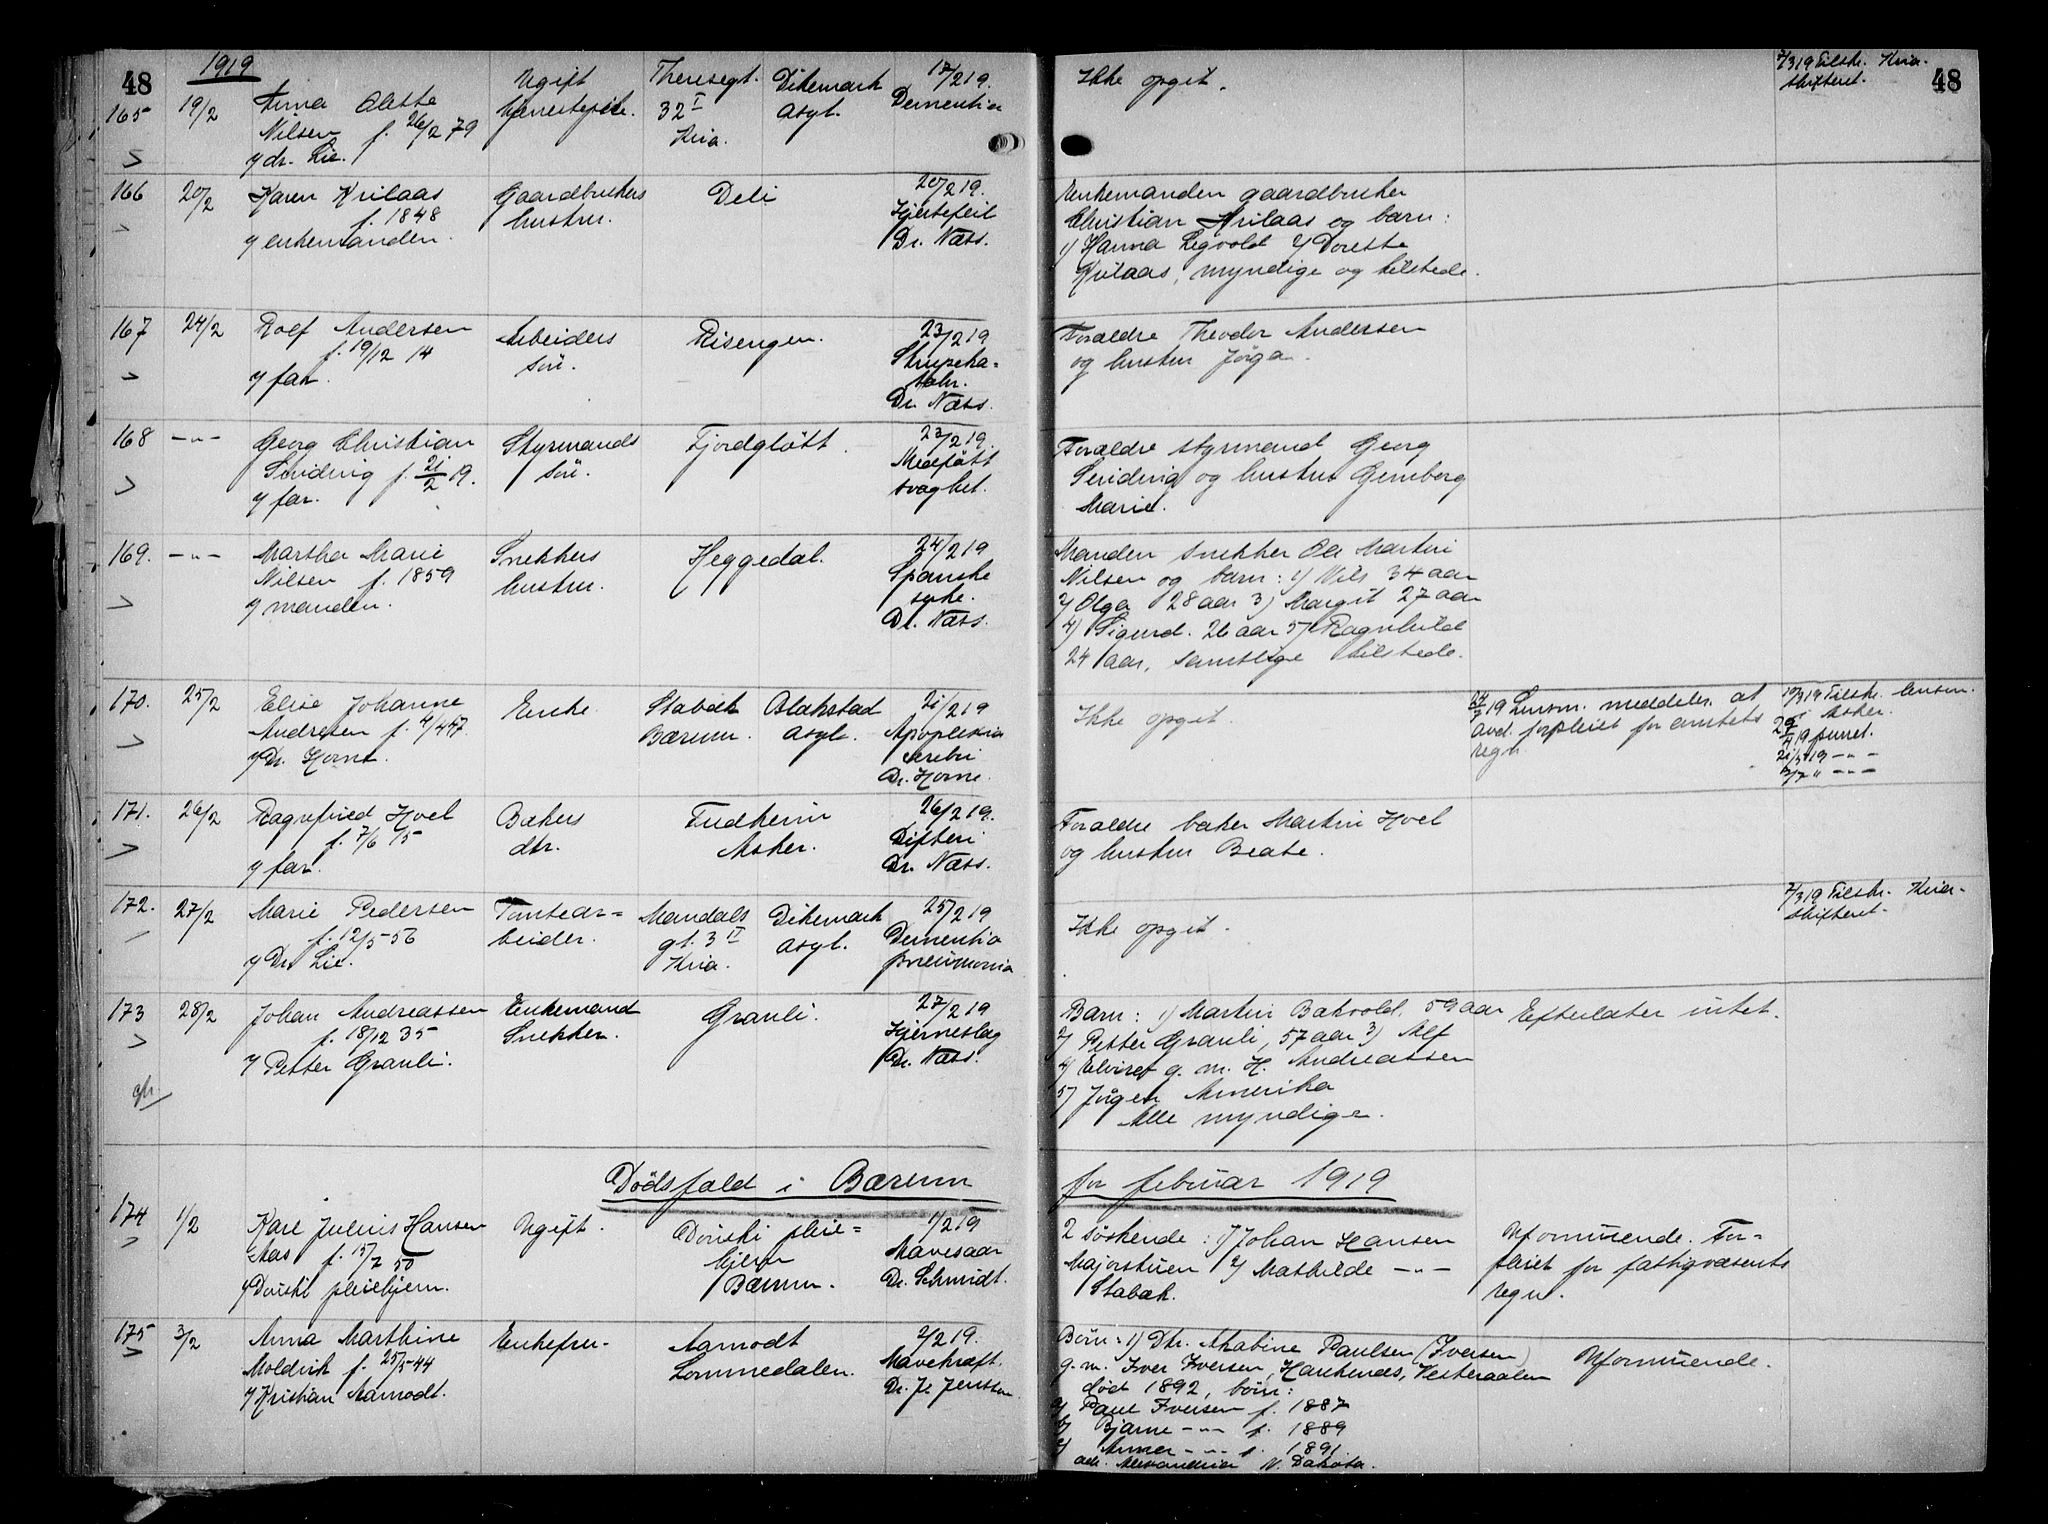 48
1919
165
19/2
Anna Olette
Nilsen f. 26/2 79
v/ dr. Lie.
Ugift
Theresegt.
32 I
Kria.
Dikemark
Asyl.
17/2 19.
Dementia
Ikke opgit.
7/3 19 Tilskr. Kria.
skifteret.
48
166
20/2
Karen Krilaas
f. 1848
v/ enkemanden.
Gaardbrukers
hustru.
Deli
20/2 19.
Hjertefeil
Dr. Næss.
Enkemanden gaardbruker
Christian Krilaas og barn:
1) Hanna Legvold 2) Dorette
Krilaas, myndige og tilstede.
167
24/2
Rolf Andersen
f. 19/12 14
v/ far.
Arbeiders
sön.
Risengen.
23/2 19
Strupeka=
tahr.
Dr. Næss.
Forældre Theodor Andersen
og hustru Jörga.
168
-"-
Georg Christian
Sinding f. 21/2 19.
v/ far.
Styrmands
sön.
Fjordglött.
23/2 19.
Medfött
svaghet.
Forældre styrmand Georg
Sinding og hustru Gemborg
Marie.
169.
-"-
Martha Marie
Nilsen f. 1859
v/ manden.
Snekkers
hustru.
Heggedal.
24/2 19
Spanske
syke.
Dr. Næss.
Manden snekker Ole Martin
Nilsen og barn: 1) Nils 34 aar
2) Olga 28 aar 3) Margit 27 aar
4) Sigurd. 26 aar 5) Ragnhild
24 aar, samtlige tilstede.
170.
25/2
Elise Johanne
Andresen f. 4/4 47.
v/ Dr. Horne.
Enke.
Stabæk
Bærum.
Blakstad
Asyl.
21/2 19
Apoplexia
cerebri
Dr. Horne.
Ikke opgit.
24/7 19 Lensm. meddeler at
avd. forpleiet for amtets
regn.
10/3 19 Tilskr. lensm.
i Asker.
29/4 19 purret.
21/5 19 -"-
12/7 " -"-
171.
26/2
Ragnfried Hoel
f. 7/6 15
v/ far.
Bakers
dtr.
Fredheim
Asker.
26/2 19.
Difteri
Dr. Næss.
Forældre baker Martin Hoel
og hustru Beate.
172.
27/2
Marie Pedersen
f. 12/5 56
v/ Dr. Lie.
Tomtear=
beider.
Mandals
gt. 3 II
Kria.
Dikemark
Asyl.
25/2 19
Dementia
pneumonia
Ikke opgit.
7/3 19 Tilskr. Kria-
skifteret.
173
28/2
Johan Andreassen
f. 18/12 35
v/ Petter Granli.
Enkemand
Snekker.
Granli.
27/2 19
Hjerneslag
Dr. Næss.
Barn: 1) Martin Bakvold. 59 aar
2) Petter Granli, 57 aar 3) Alf
4) Elvire g. m. H. Andreassen
5) Jörgen Amerika
Alle myndige.
Efterlater intet.
Dödsfald i Bærum
for februar 1919
174
1/2
Karl Julius Hansen
Aas f. 15/7 50
v/ Dönski pleiehjem.
Ugift.
Dönski pleie=
hjem
Bærum.
1/2 19
Mavesaar
Dr. Schmidt.
2 söskende: 1) Johan Hansen
Majorstuen 2) Mathilde -"-
Stabæk.
Uformuende. For=
pleiet for fattigvæsenets
regn.
175
3/2
Anna Marthine
Moldvik f. 25/5 44
v/ Kristian Aamodt.
Enkefru
Aamodt
Lommedalen.
2/2 19.
Mavekræft.
Dr. Jenssen.
Börn: 1) Dtr. Mabine Paulsen (Iversen)
g.m. Iver Iversen, Hankends, Vesteraalen
död 1892, börn:
a) Paul Iversen f. 1887
b) Bjarne -"- f. 1889
c) Anna -"- f. 1891.
adr. Alexandria N. Dakota.
Uformuende.